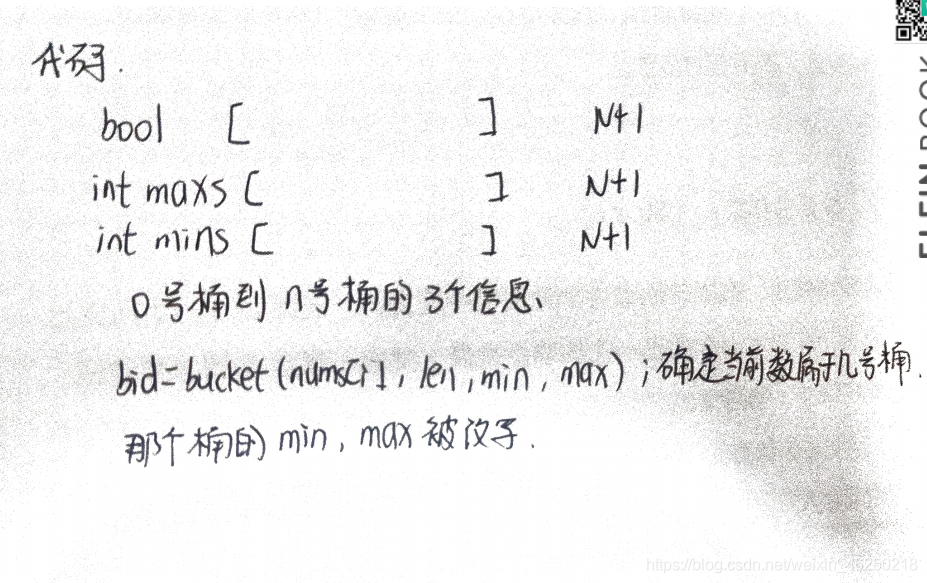 代码.
bool [ ] N+1
int maxs [ ] N+1
int mins [ ] N+1
0号桶到n号桶的3个信息、
bid=bucket(nums[i], len, min, max);确定当前数属于几号桶.
那个桶的min, max被改了.
https://blog.csdn.net/weixin_46250218